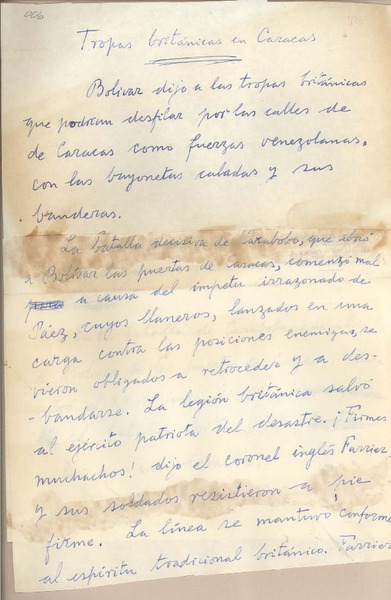 006
Tropas británicas en Caracas
Bolívar dijo a las tropas británicas
que podrían desfilar por las calles de
de Caracas como fuerzas venezolanas,
con las bayonetas caladas y sus
banderas.
La batalla decisiva de Carabobo, que abrió
a Bolívar las puertas de Caracas, comenzó mal
a causa del ímpetu irrazonado de
Páez, cuyos llaneros, lanzados en una
carga contra las posiciones enemigas, se
vieron obligados a retroceder y a des-
-bandarse. La legión británica salvó
al ejército patriota del desastre. ¡Firmes
muchachos! dijo el coronel inglés Farriar
y sus soldados resistieron a pie
firme. La línea se mantuvo conforme
al espíritu tradicional británico. Farriar